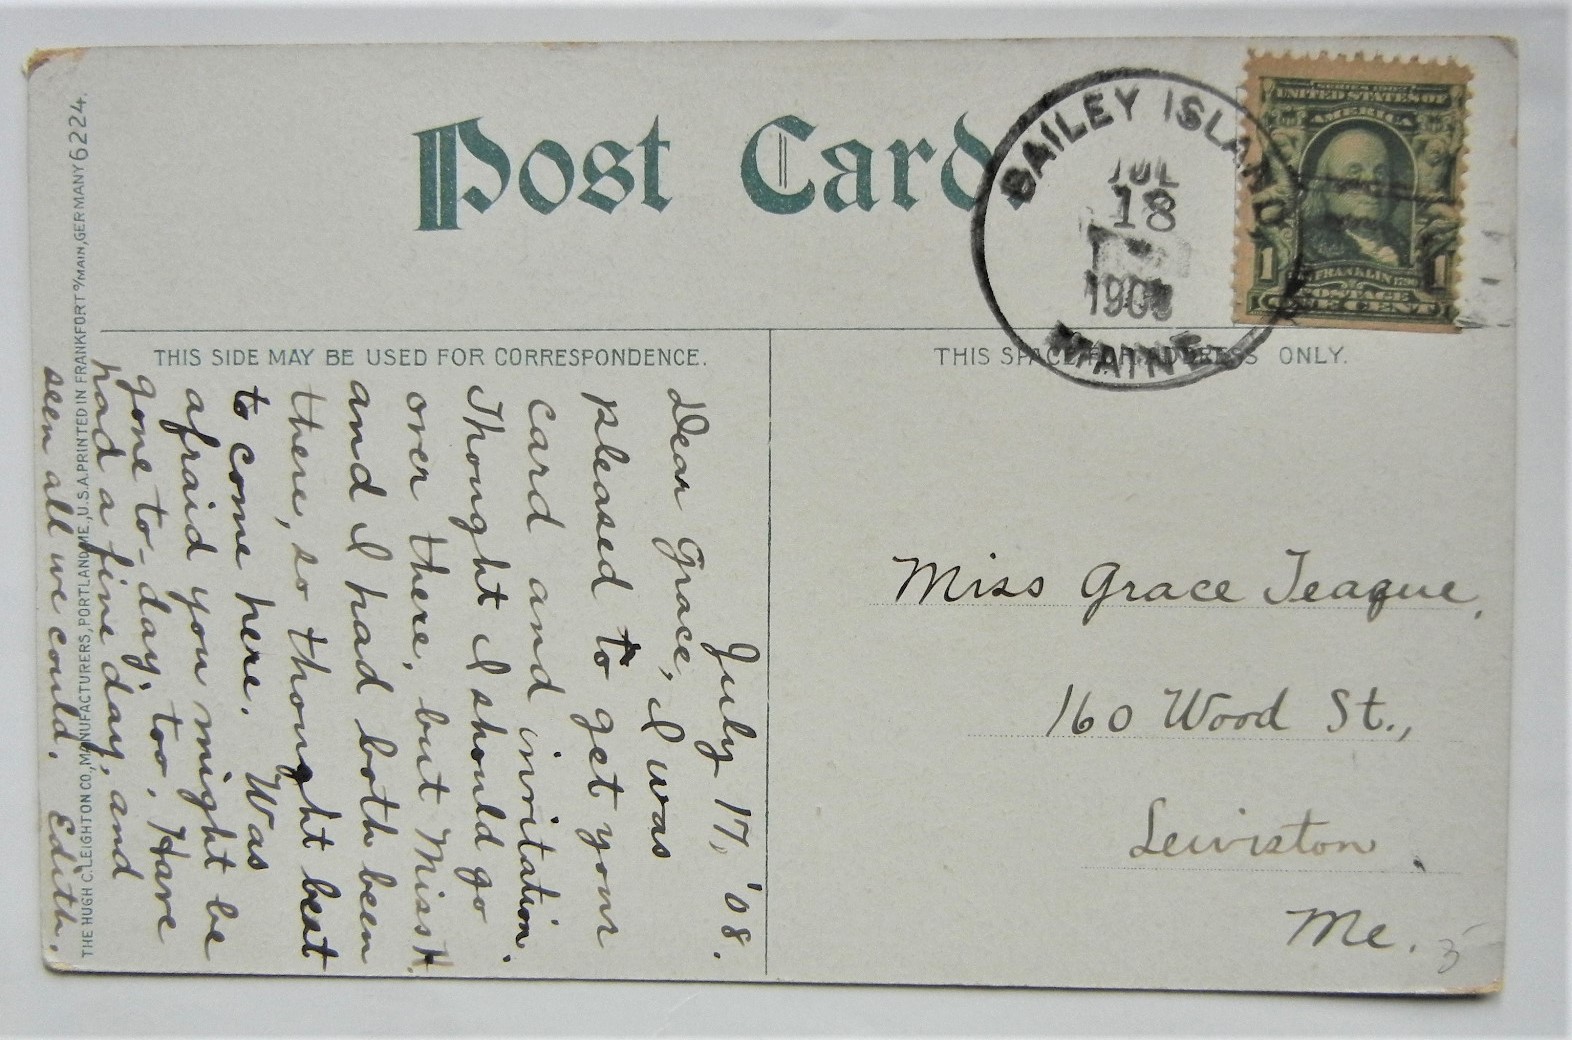 Post Card
BAILEY ISLAND
JUL
18
1908
MAINE
SERIES 1902
UNITED STATES OF
AMERICA
1 FRANKLIN 1790 1
POSTAGE
ONE CENT
THIS SIDE MAY BE USED FOR CORRESPONDENCE.
THIS SPACE FOR ADDRESS ONLY.
July 17, '08.
Dear Grace, I was
pleased to get your
card and invitation.
Thought I should go
over there, but Miss H.
and I had both been
there, so thought best
to come here. Was
afraid you might be
gone to-day, too. Have
had a fine day, and
seen all we could. Edith.
Miss Grace Teague,
160 Wood St.,
Lewiston
Me.
THE HUGH C. LEIGHTON CO., MANUFACTURERS, PORTLAND, ME., U.S.A. PRINTED IN FRANKFORT o/MAIN, GERMANY 6224.